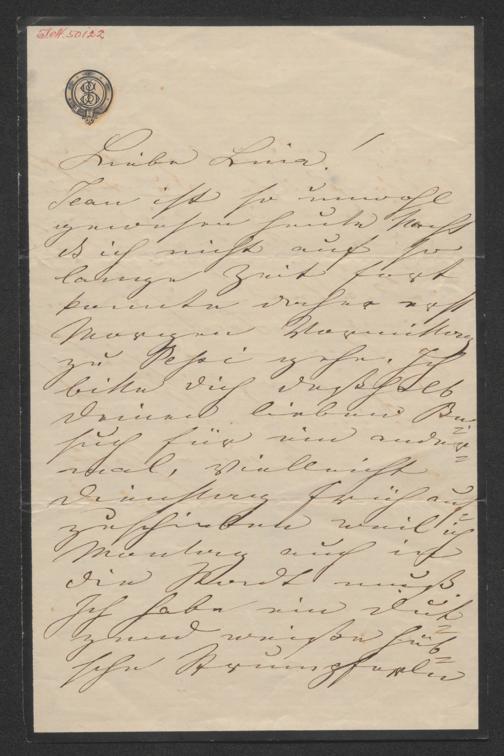 I.N. 50122
S
Liebe Lina!
Jean ist so unwohl
gewesen heute Nacht
ds ich nicht auf so
lange Zeit fort
konnte daher erst
Morgen Vormittag
zu Pepi gehe. Ich
bitte dich deßhalb
deinen lieben Be=
such für ein ander=
mal, vielleicht
Dienstag früh auf=
zuschieben weil ich
Montag auch in
die Stadt muß.
Ich habe ein Dut=
zend weiße hüb=
sche Strumpferln